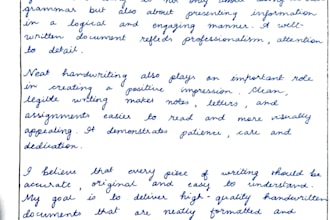 grammar but also about presenting information
in a logical and engaging manner. A well-
written document reflects professionalism, attention
to detail.
Neat handwriting also plays an important role
in creating a positive impression. Clean,
legible writing makes notes, letters, and
assignments easier to read and more visually
appealing. It demonstrates patience, care and
dedication.
I believe that every piece of writing should be
accurate, original and easy to understand.
My goal is to deliver high-quality handwritten
documents that are neatly formatted and